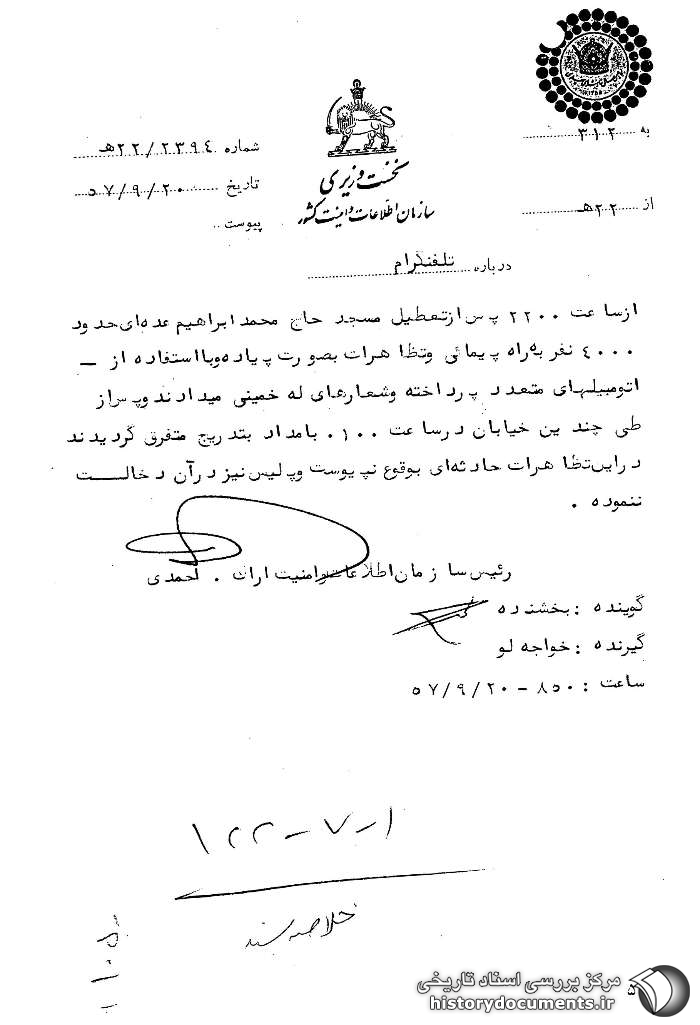 به ۳۱۲
نخست وزیری
سازمان اطلاعات و امنیت کشور
شماره ۲۲/۲۳۹٤ هـ
از ۲۲ هـ
تاریخ ۵۷/۹/۲۰
پیوست
درباره تلفنگرام
ازساعت ۲۲۰۰ پس ازتعطیل مسجد حاج محمد ابراهیم عده‌ای حدود
٤۰۰۰ نفر به راه پیمائی وتظاهرات بصورت پیاده وبااستفاده از –
اتومبیلهای متعدد پرداخته وشعارهای له خمینی میدادند وپس از
طی چندین خیابان درساعت ۰۱۰۰ بامداد بتدریج متفرق گردیدند
دراین تظاهرات حادثه‌ای بوقوع نپیوست وپلیس نیز درآن دخالت
ننموده .
رئیس سازمان اطلاعات وامنیت اراک . احمدی
گوینده : بخشنده
گیرنده : خواجه لو
ساعت : ۸۵۰ – ۵۷/۹/۲۰
خلاصه سند
مرکز بررسی اسناد تاریخی
historydocuments.ir